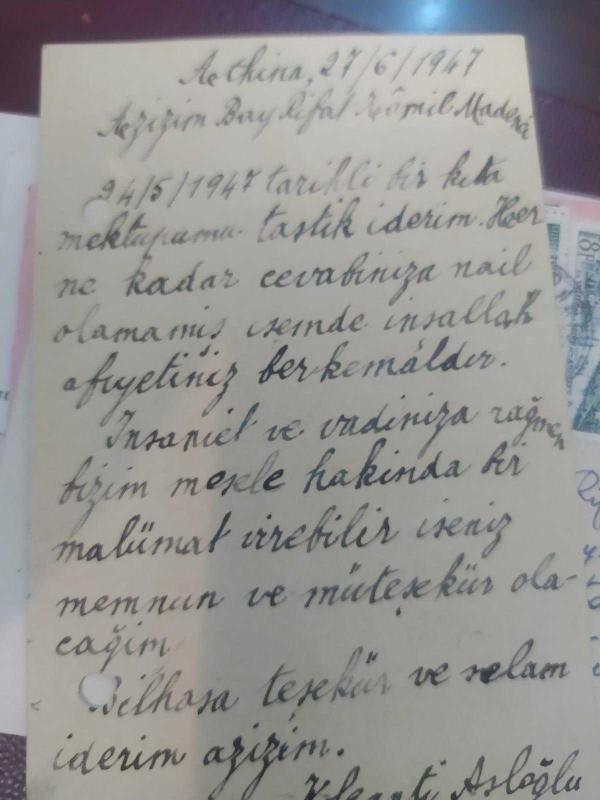 Aethina, 27/6/1947
Azizim Bay Rifat Kâmil Madenci
24/5/1947 tarihli bir kıta
mektupumu tastik iderim. Her
ne kadar cevabiniza nail
olamamiş isemde insallah
afıyetiñiz berkemâldır.
Insaniet ve vadiniza rağmen
bizim mesele hakinda bir
malümat virebilir iseniz
memnun ve müteşekür ola-
cağim
Bilhasa teşekür ve selam
iderim azizim.
Asloğlu